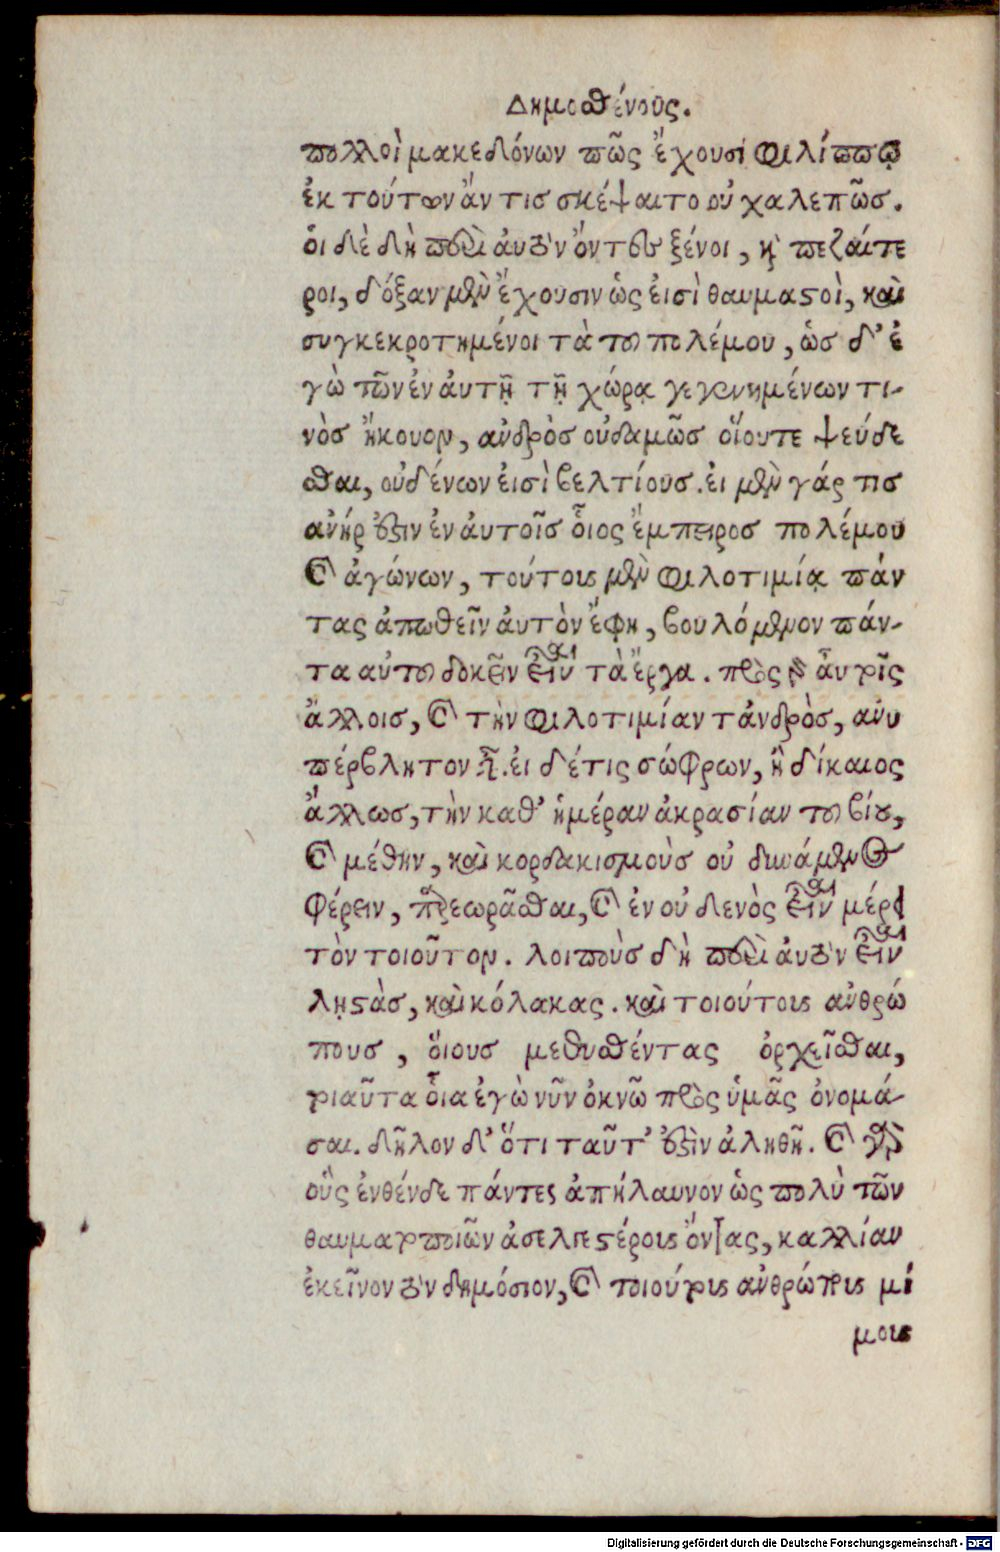 Δημοσθένους.
πολλοὶ μακεδόνων πῶς ἔχουσι φιλίππῳ
ἐκ τούτων ἄν τις σκέψαιτο οὐ χαλεπῶς.
ὁι δὲ δὴ περὶ ἀυτὸν ὄντες ξένοι, καὶ πεζαίτε
ροι, δόξαν μὲν ἔχουσιν ὡς ἐισὶ θαυμαστοὶ, καὶ
συγκεκροτημένοι τὰ του πολέμου, ὡς δ' ἐ
γὼ τῶν ἐν ἀυτῇ τῇ χώρᾳ γεγενημένων τι-
νὸς ἤκουον, ἀνδρὸς οὐδαμῶς οἵουτε ψεύδε
σθαι, οὐδένων ἐισὶ βελτίους. ἐι μὲν γάρ τις
ἀνήρ ἐστιν ἐν ἀυτοῖς ὃιος ἔμπειρος πολέμου
καὶ ἀγώνων, τούτους μὲν φιλοτιμίᾳ πάν
τας ἀπωθεῖν ἀυτὸν ἔφη, βουλόμενον πάν-
τα αὐτου δοκεῖν εἶναι τὰ ἔργα. πρὸς γὰρ ἂυ τοῖς
ἄλλοις, καὶ τὴν φιλοτιμίαν τἀνδρὸς, ἀνυ
πέρβλητον εἶναι. ἐι δέ τις σώφρων, ἢ δίκαιος
ἄλλως, τὴν καθ' ἡμέραν ἀκρασίαν του βίου,
καὶ μέθην, καὶ κορδακισμοὺς οὐ δυνάμενος
φέρειν, παρεωρᾶσθαι, καὶ ἐν οὐδενὸς εἶναι μέρει
τὸν τοιοῦτον. λοιποὺς δὴ περὶ ἀυτὸν εἶναι
λῃστὰς, καὶ κόλακας. καὶ τοιούτους ἀνθρώ
πους, ὅιους μεθυσθέντας ὀρχεῖσθαι,
τοιαῦτα ὃια ἐγὼ νῦν ὀκνῶ πρὸς ὑμᾶς ὀνομά-
σαι. δῆλον δ' ὅτι ταῦτ' ἐστὶν ἀληθῆ. καὶ γὰρ
οὓς ἐνθένδε πάντες ἀπήλαυνον ὡς πολὺ τῶν
θαυματοποιῶν ἀσελγεστέρους ὄντας, καλλίαν
ἐκεῖνον τὸν δημόσιον, καὶ τοιούτους ἀνθρώπους μί
μους
Digitalisierung gefördert durch die Deutsche Forschungsgemeinschaft - DFG